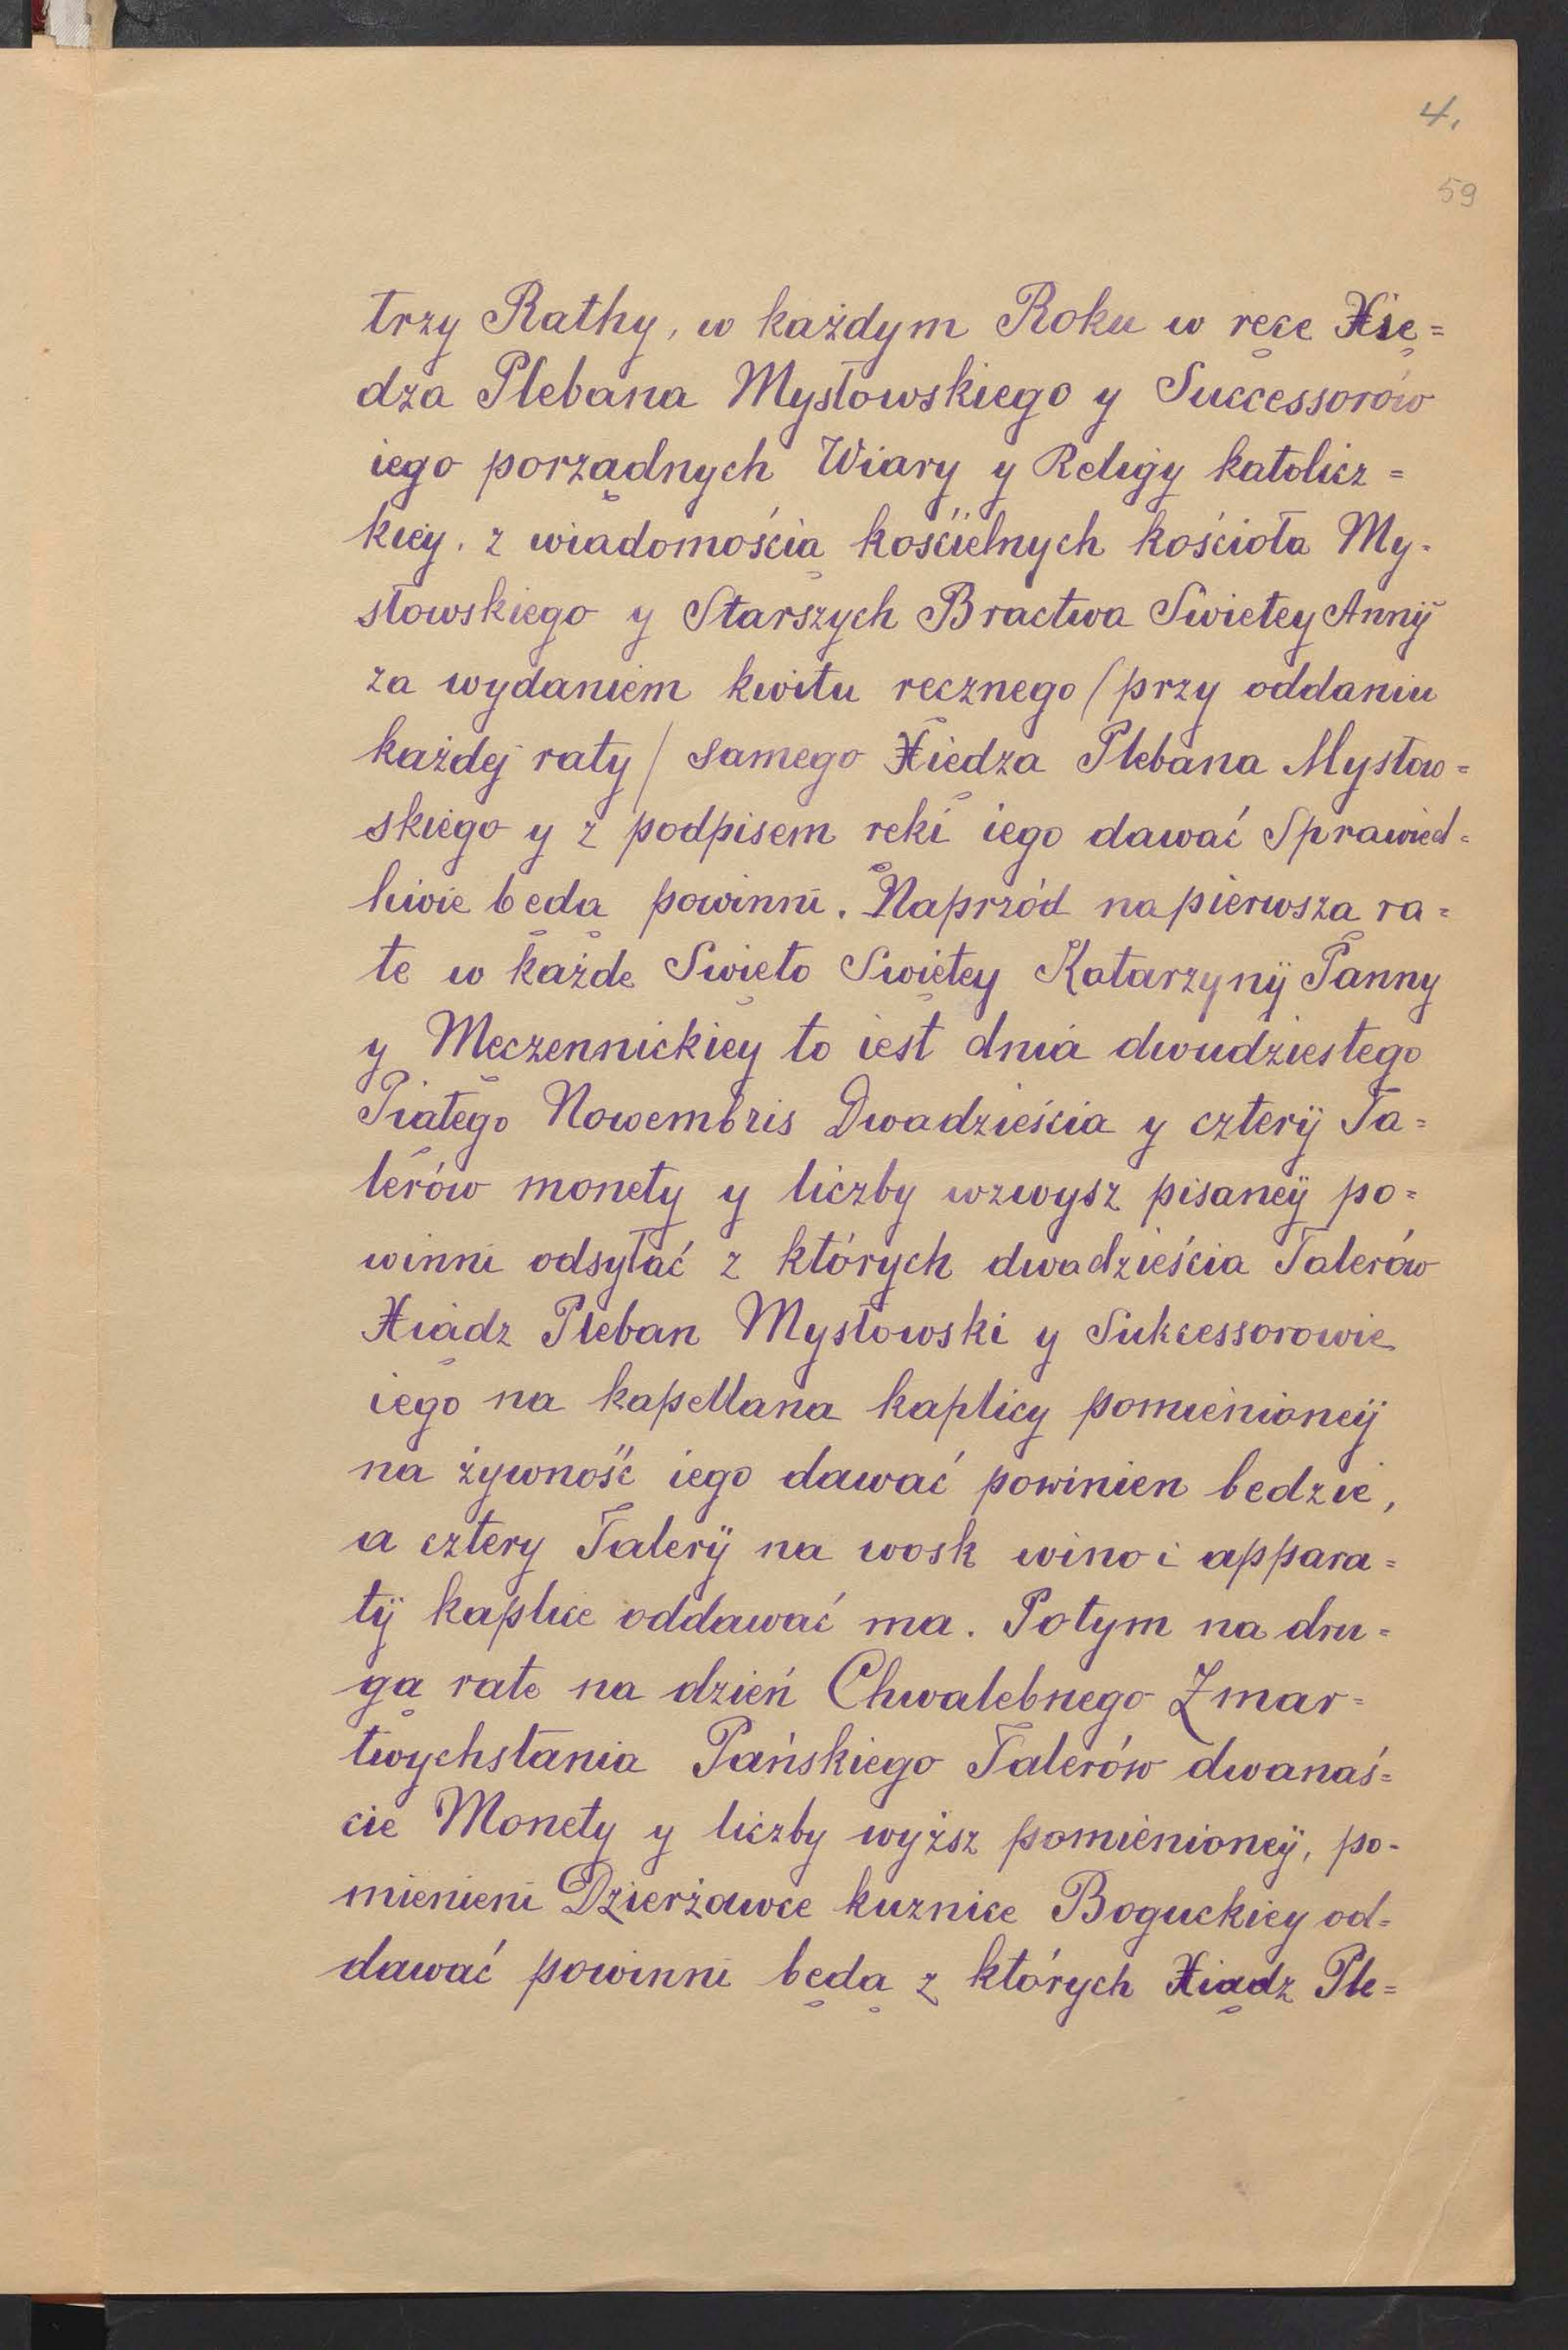 4.
59
trzy Rathy, w każdym Roku w ręce Xię=
dza Plebana Mysłowskiego y Successorów
iego porządnych Wiary y Religÿ katolicz=
kiey. z wiadomością kościelnych kościoła My-
słowskiego y Starszych Bractwa Swietey Annÿ
za wydaniem kwitu ręcznego / przy oddaniu
każdej raty / samego Xiędza Plebana Mysłow=
skiego y z podpisem ręki iego dawać Sprawied=
liwie będą powinni. Naprzód na pierwszą ra=
te w każde Swięto Swiętey Katarzynÿ Panny
y Męczennickiey to iest dnia dwudziestego
Piątego Nowembris Dwadzieścia y czterÿ Ta=
lerów monety y liczby wzwysz pisaneÿ po=
winni odsyłać z których dwadzieścia Talerów
Xiądz Pleban Mysłowski y Sukcessorowie
iego na kapellana kaplicy pomienioneÿ
na żywność iego dawać powinien bedzie,
a cztery Talerÿ na wosk wino i appara=
tÿ kaplice oddawać ma. Potym na dru=
gą rate na dzień Chwalebnego Zmar=
twychstania Pańskiego Talerów dwanaś=
cie Monety y liczby wyższ pomienioneÿ, po-
mienieni Dzierżawce kuznice Boguckiey od=
dawać powinni będą z których Xiądz Ple=